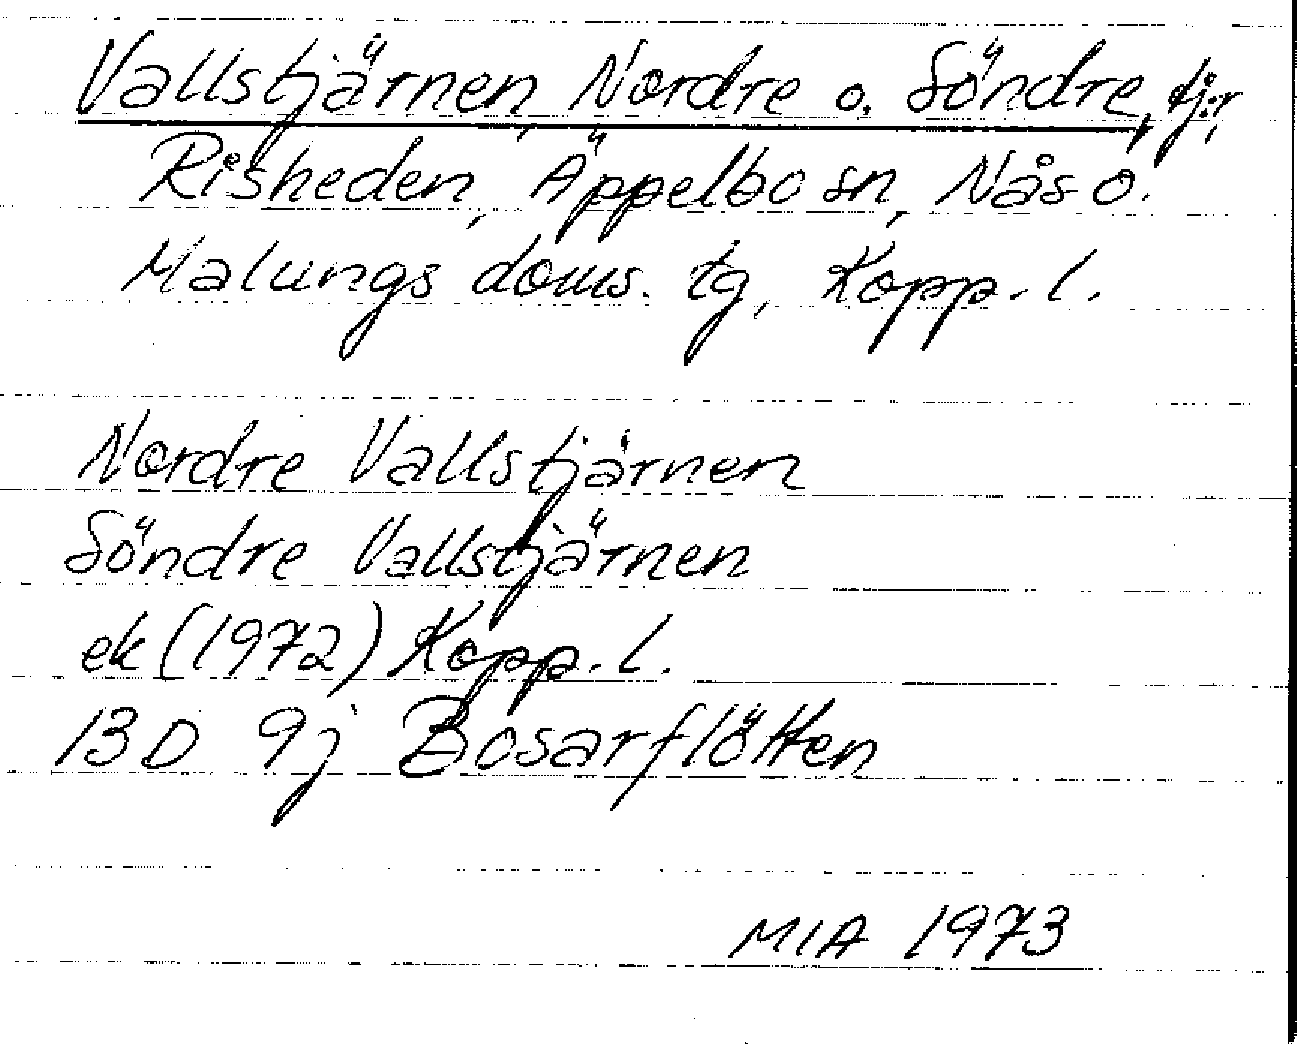 Vallstjärnen, Nordre o. Söndre, tj:r,
Risheden, Äppelbo sn, Nås o.
Malungs doms. tg, Kopp. l.
Nordre Vallstjärnen
Söndre Vallstjärnen
ek (1972) Kopp. l.
13 D 9j Bosarflötten
MIA 1973